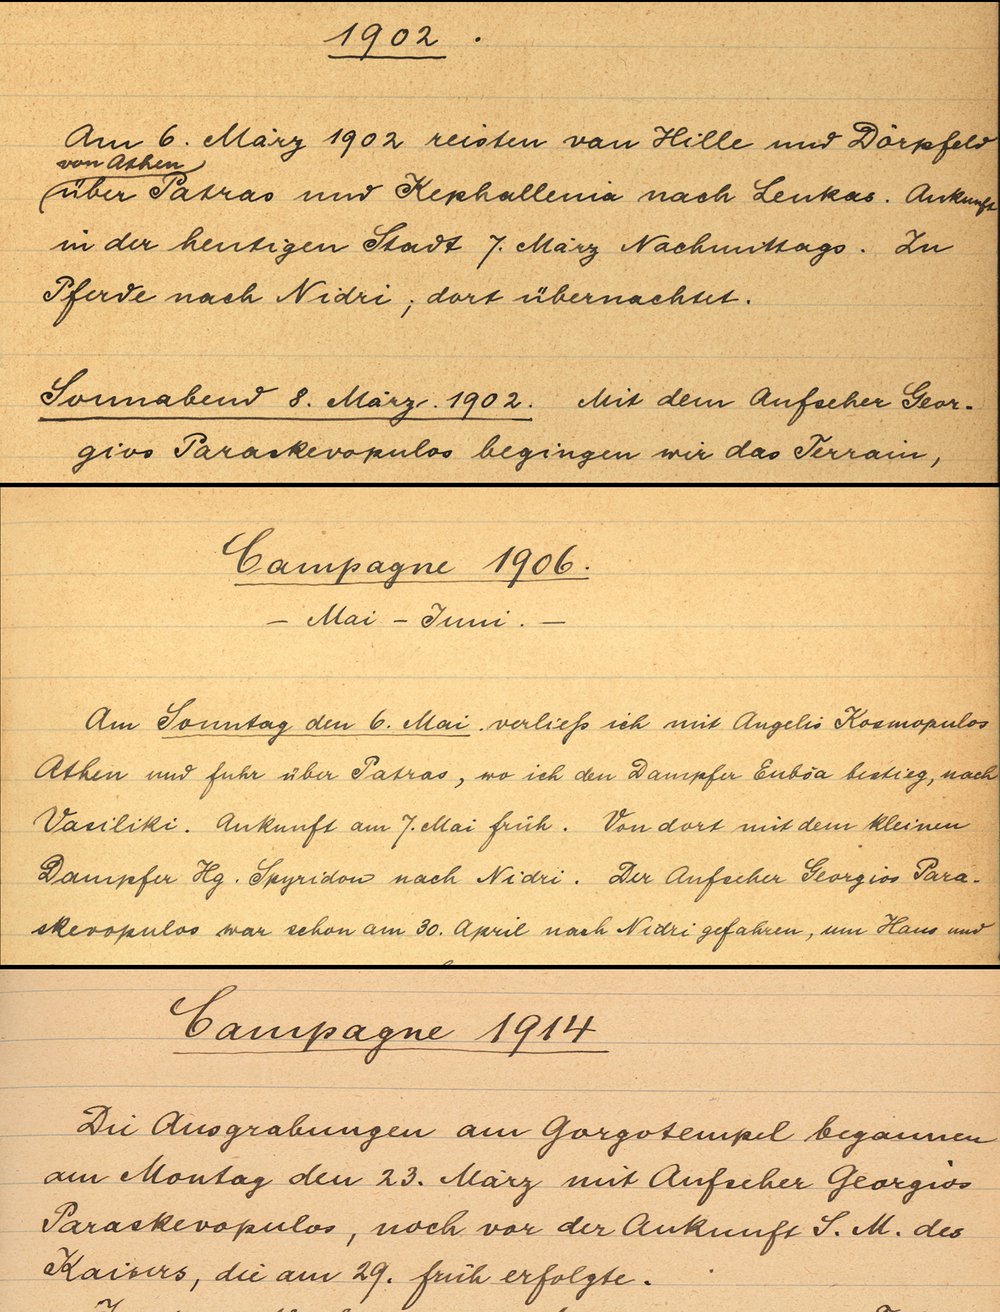 1902.
Am 6. März 1902 reisten van Hille und Dörpfeld
von Athen
über Patras und Kephallenia nach Leukas. Ankunft
in der heutigen Stadt 7. März Nachmittags. Zu
Pferde nach Nidri; dort übernachtet.
Sonnabend 8. März. 1902. Mit dem Aufseher Geor-
gios Paraskevopulos begingen wir das Terrain,
Campagne 1906.
– Mai – Juni. –
Am Sonntag den 6. Mai verließ ich mit Angelis Kosmopulos
Athen und fuhr über Patras, wo ich den Dampfer Euböa bestieg, nach
Vasiliki. Ankunft am 7. Mai früh. Von dort mit dem kleinen
Dampfer Hg. Spyridon nach Nidri. Der Aufseher Georgios Para-
skevopulos war schon am 30. April nach Nidri gefahren, um Haus und
Campagne 1914
Die Ausgrabungen am Gorgotempel begannen
am Montag den 23. März mit Aufseher Georgios
Paraskevopulos, noch vor der Ankunft S. M. des
Kaisers, die am 29. früh erfolgte.